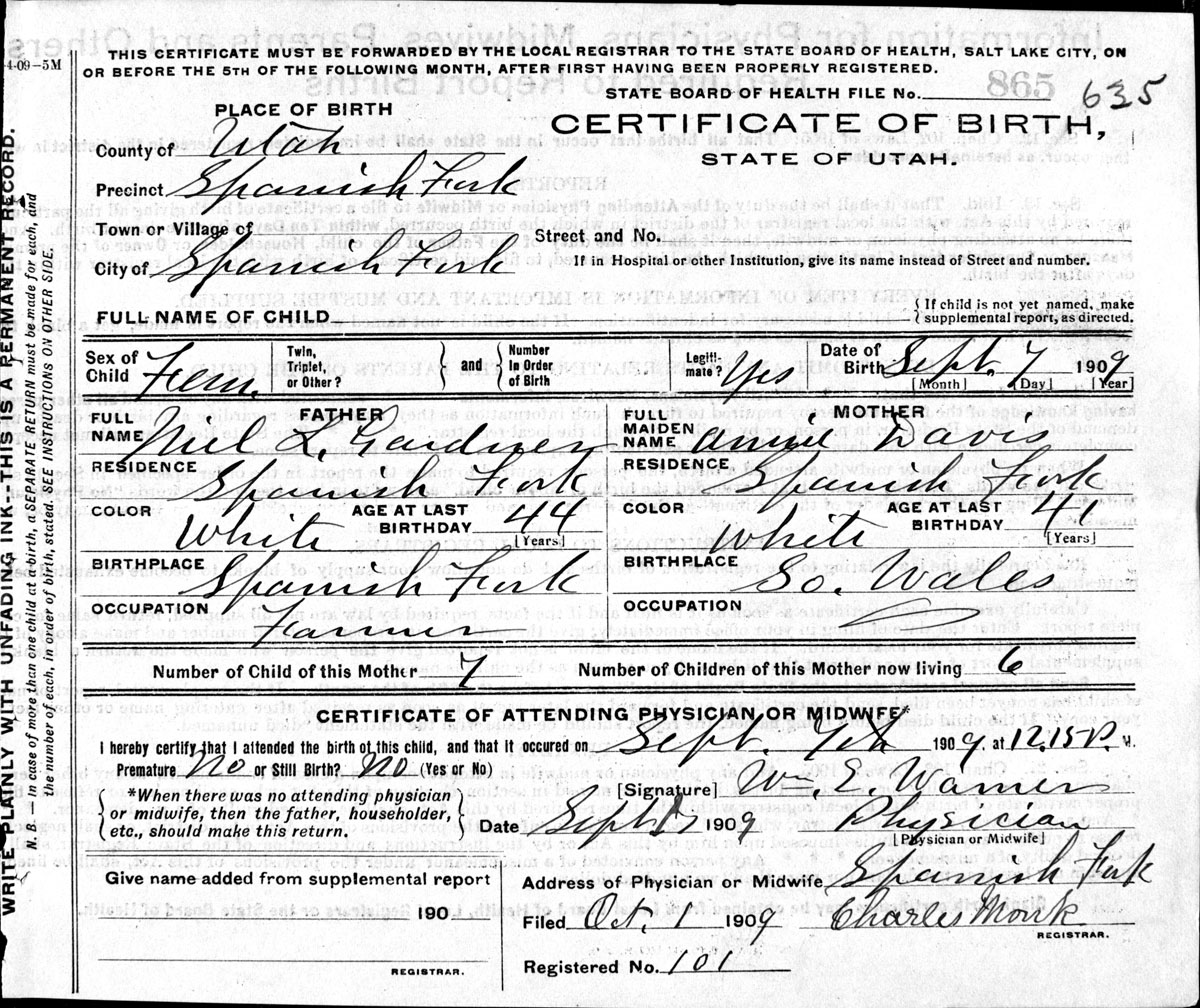 THIS CERTIFICATE MUST BE FORWARDED BY THE LOCAL REGISTRAR TO THE STATE BOARD OF HEALTH, SALT LAKE CITY, ON
4-09-5M
OR BEFORE THE 5TH OF THE FOLLOWING MONTH, AFTER FIRST HAVING BEEN PROPERLY REGISTERED.
STATE BOARD OF HEALTH FILE No. 865 635
PLACE OF BIRTH
CERTIFICATE OF BIRTH,
STATE OF UTAH.
County of Utah
Precinct Spanish Fork
Town or Village of
Street and No.
City of Spanish Fork
If in Hospital or other Institution, give its name instead of Street and number.
FULL NAME OF CHILD
{ If child is not yet named, make
supplemental report, as directed.
Sex of Child Fem.
Twin, Triplet, or Other?
and
Number In Order of Birth
Legiti-mate? Yes
Date of Birth Sept. 7 1909
[Month] [Day] [Year]
FATHER
FULL NAME Niel L. Gardner
RESIDENCE Spanish Fork
COLOR White
AGE AT LAST BIRTHDAY 44
[Years]
BIRTHPLACE Spanish Fork
OCCUPATION Farmer
MOTHER
FULL MAIDEN NAME Annie Davis
RESIDENCE Spanish Fork
COLOR White
AGE AT LAST BIRTHDAY 41
[Years]
BIRTHPLACE So. Wales
OCCUPATION
Number of Child of this Mother 7
Number of Children of this Mother now living 6
CERTIFICATE OF ATTENDING PHYSICIAN OR MIDWIFE*
I hereby certify that I attended the birth of this child, and that it occured on Sept. 7th 1909, at 12.15 P. M.
Premature No or Still Birth? No (Yes or No)
[Signature] Wm. E. Warner
*When there was no attending physician
or midwife, then the father, householder,
etc., should make this return.
Date Sept 1909
Physician
[Physician or Midwife]
Give name added from supplemental report
190
REGISTRAR.
Address of Physician or Midwife Spanish Fork
Filed Oct. 1 1909 Charles Monk
REGISTRAR.
Registered No. 101
WRITE PLAINLY WITH UNFADING INK—THIS IS A PERMANENT RECORD.
N. B. — In case of more than one child at a birth, a SEPARATE RETURN must be made for each, and
the number of each, in order of birth, stated. SEE INSTRUCTIONS ON OTHER SIDE.